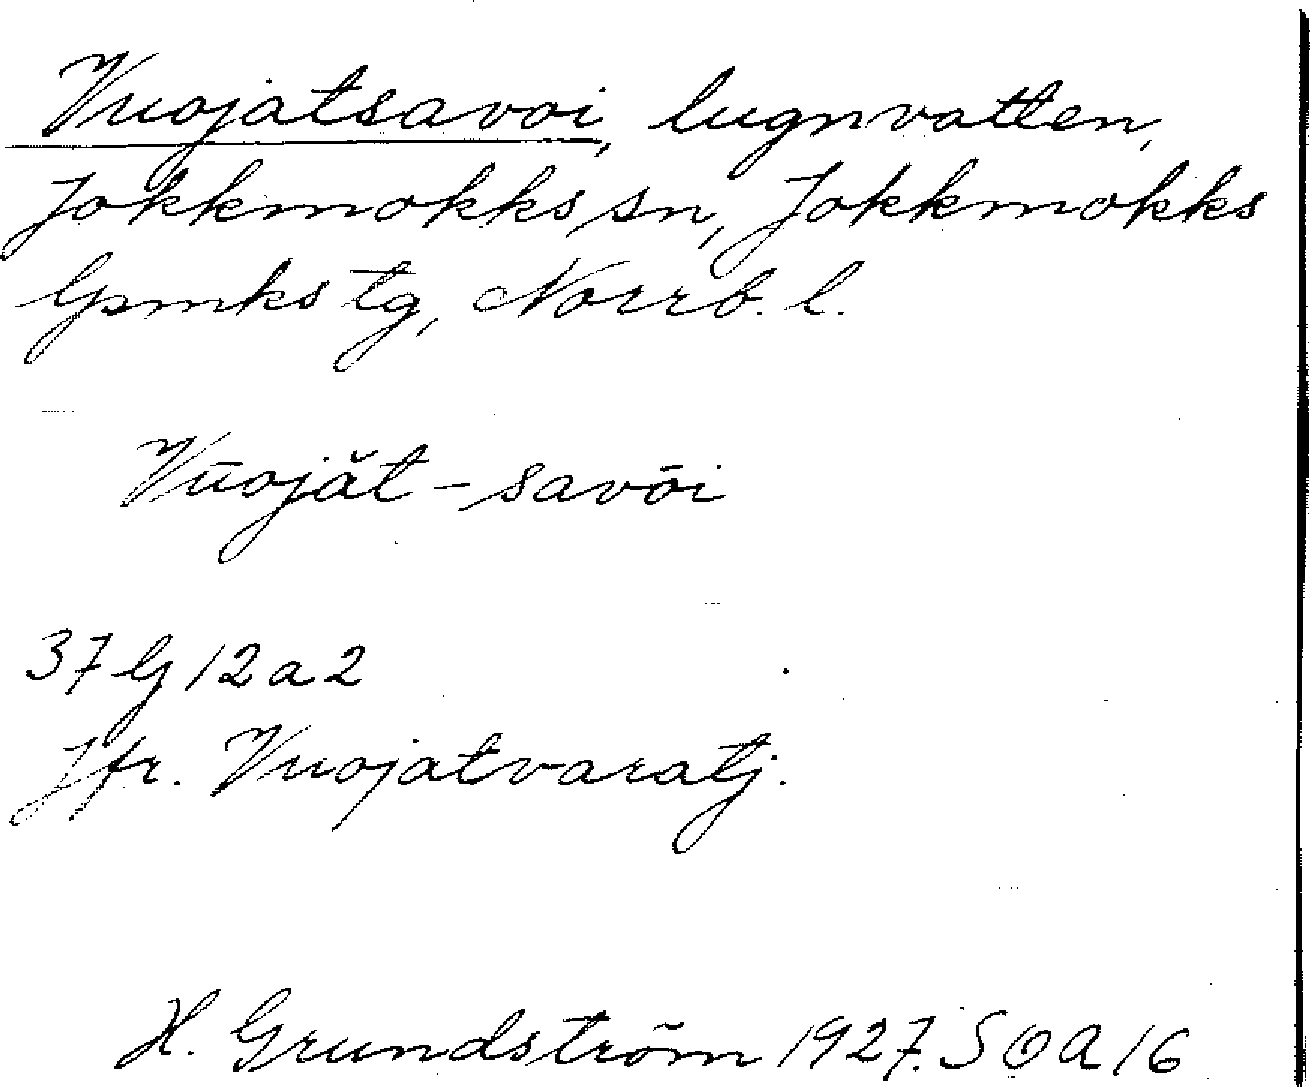 Vuojatsavoi, lugnvatten,
Jokkmokks sn, Jokkmokks
Gpmks tg, Norrb. l.
Vūojăt-savōi
37 G 12 a 2
Jfr. Vuojatvaratj.
H. Grundström 1927. SOA 16